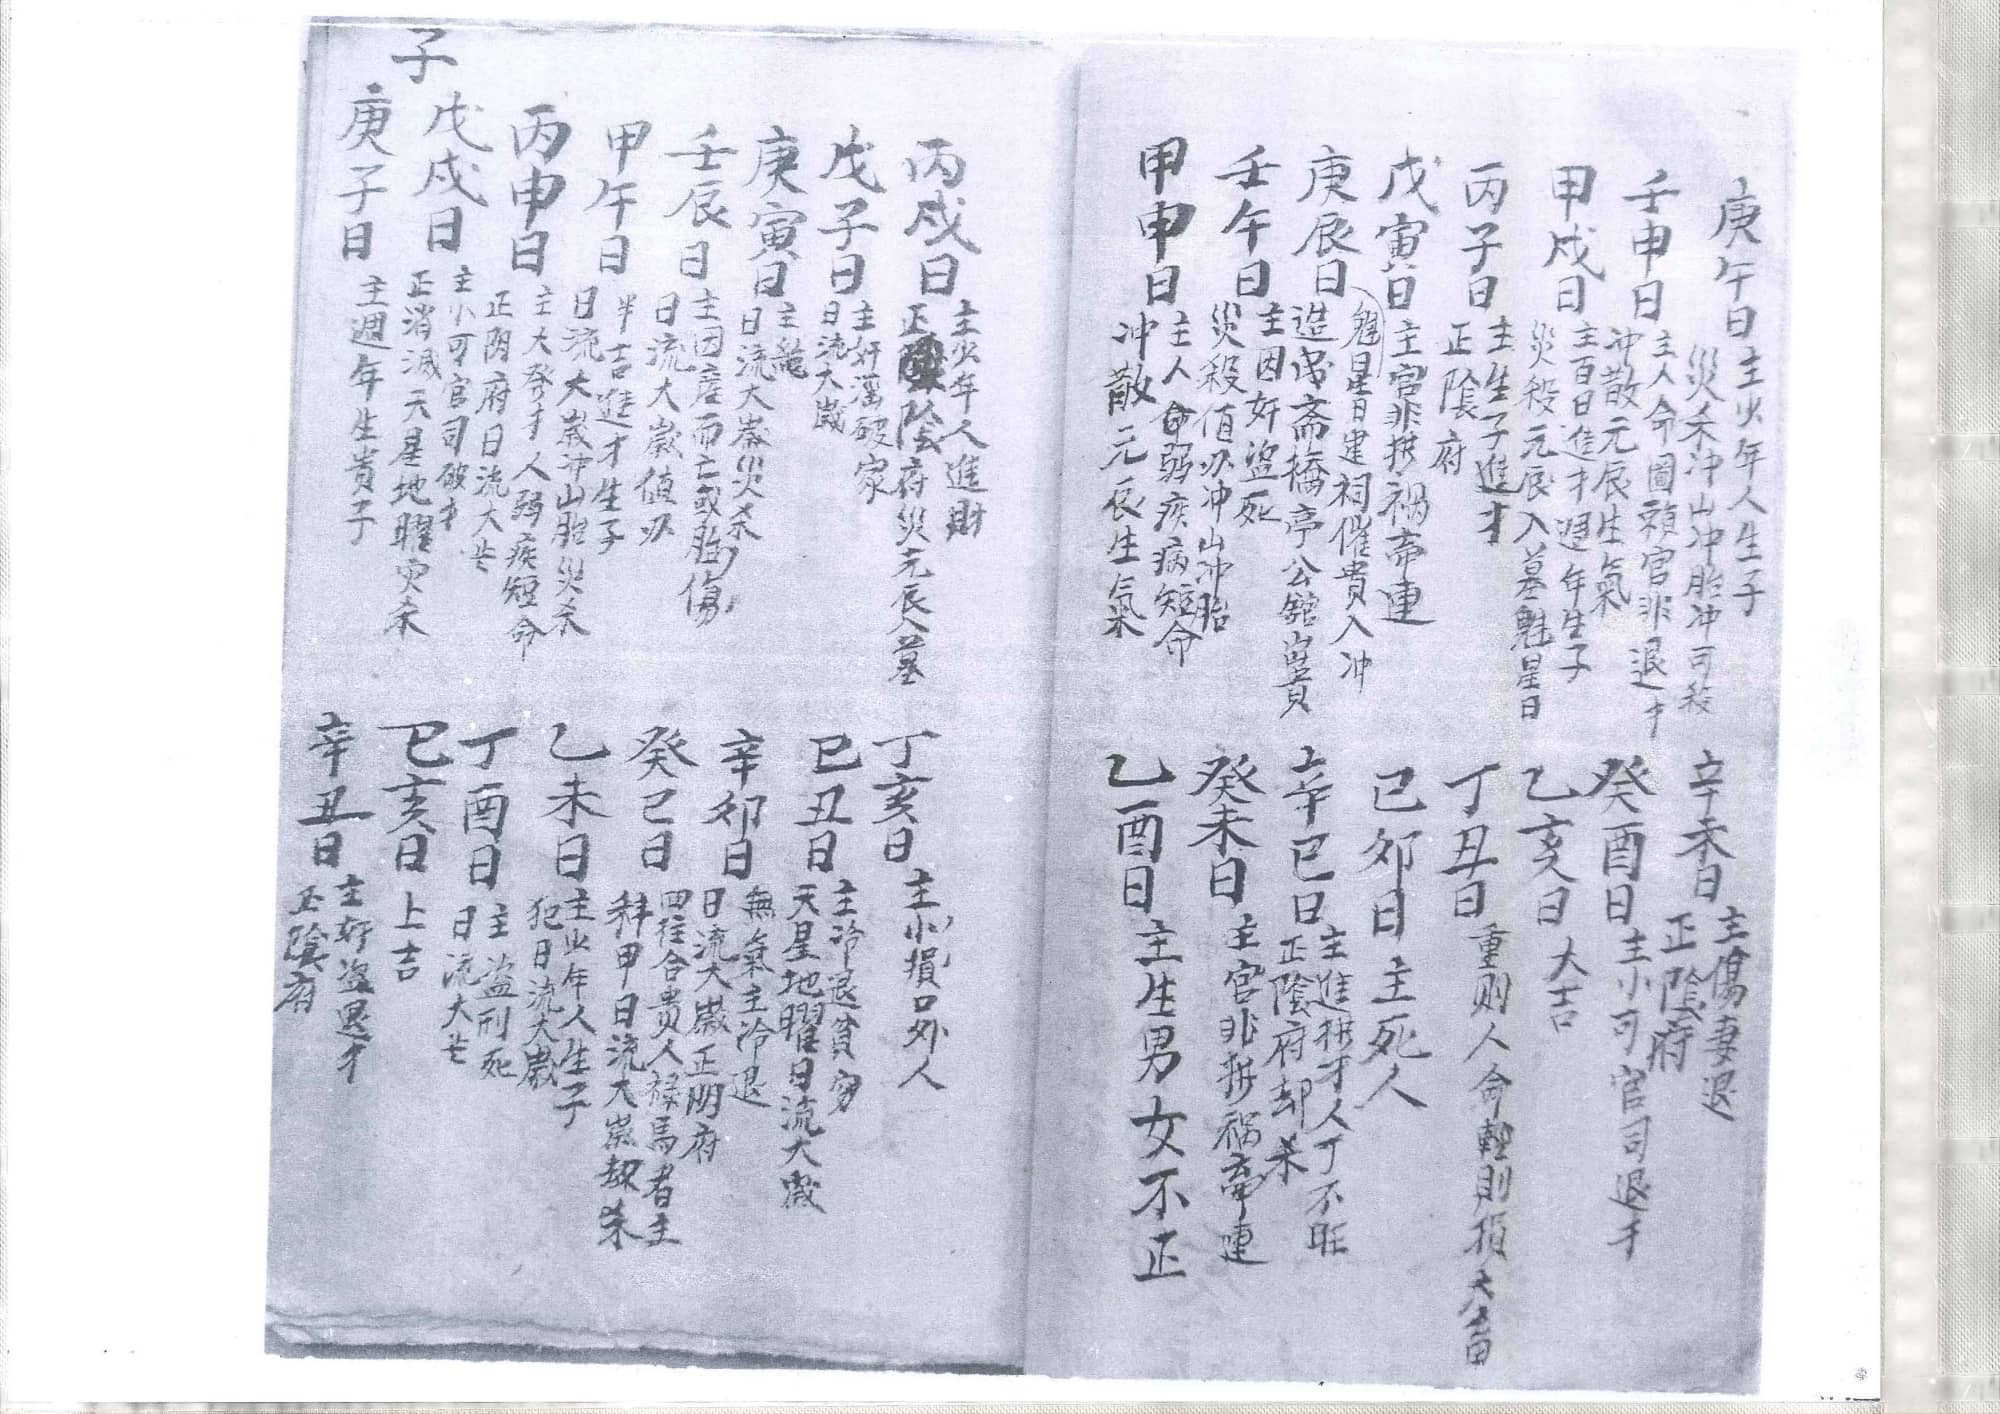 庚午日
主少年人生子
災禾冲山冲胎冲可殺
辛未日
主傷妻退
正陰府
壬申日
主人命圖賴官非退才
冲散元辰生氣
癸酉日
主小可官司退才
甲戌日
主百日進才週年生子
災殺元辰入墓魁星日
乙亥日
大吉
丙子日
主生子進才
正陰府
丁丑日
重則人命輕則損大畜
戊寅日
主官非拱禍帝連
己卯日
主死人
庚辰日
魁星日建祠催貴入冲
造成斋橋亭公舘
辛巳日
主進拱才人丁不旺
正陰府却杀
壬午日
主因奸盗死
災殺值冲山冲胎
癸未日
主官非拱禍帝連
甲申日
主人命弱疾病短命
冲散元辰生氣
乙酉日
主生男女不正
丙戌日
主少年人進財
正陰府災元辰入墓
丁亥日
主小損口外人
戊子日
主奸淫破家
日流大歲
己丑日
主冷退貧穷
天星地曜日流大歲
庚寅日
主
日流大歲災杀
辛卯日
無氣主冷退
日流大歲正阴府
壬辰日
主因産而亡或胎傷
日流大歲值
癸巳日
四柱合贵人禄馬者主
科甲日流大歲却杀
甲午日
半吉進才生子
日流大歲冲山胎災杀
乙未日
主少年人生子
犯日流大歲
丙申日
主大發才人弱疾短命
正阴府日流大
丁酉日
主盗刑死
日流大
戊戌日
主小可官司破才
正消滅天星地曜灾杀
己亥日
上吉
子
庚子日
主週年生貴子
辛丑日
主奸盗退才
正陰府